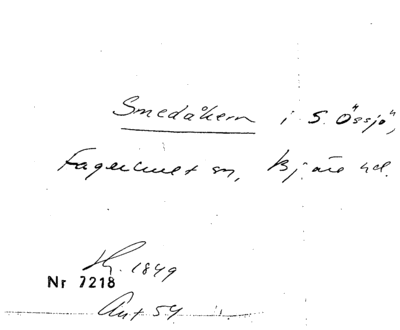 Smedåkern i S. Össjö,
Fagerhult sn, Bjäre hd.
Nr 7218
1849
Ant 54